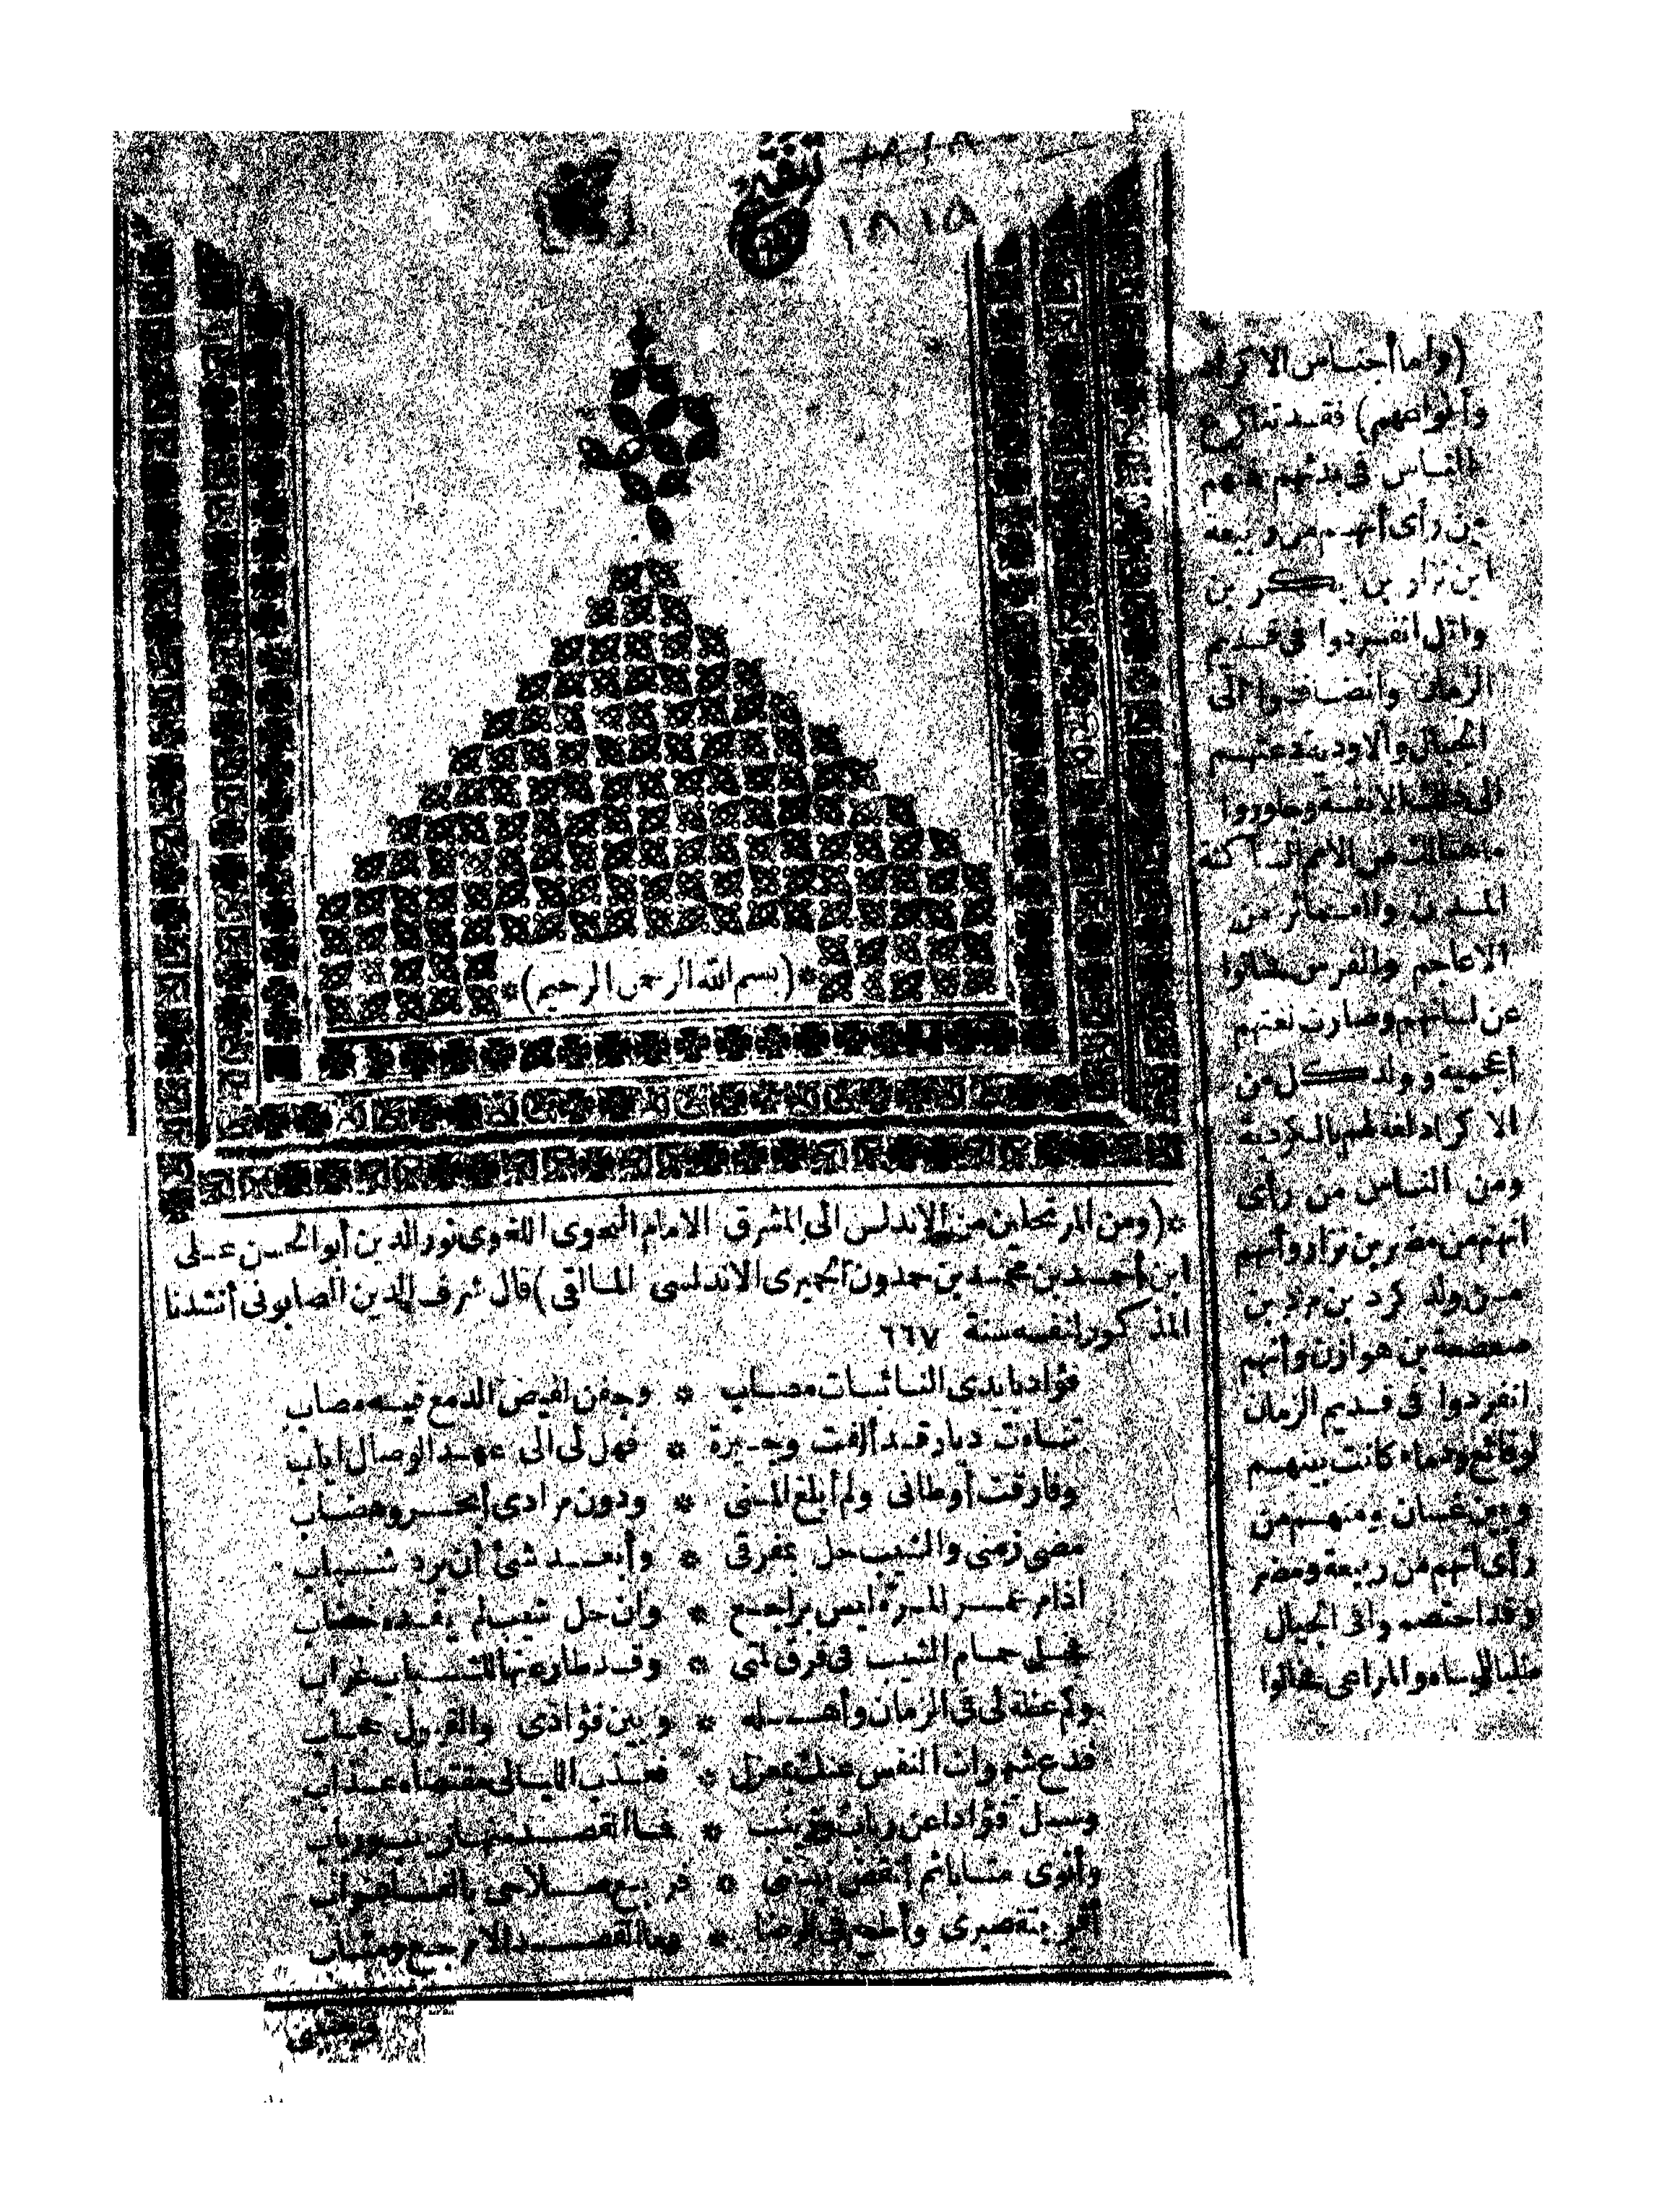 ١٨١٥
*(بسم الله الرحمن الرحيم)*
*(ومن المرتحلين من الاندلس الى المشرق الامام النحوى اللغوى نور الدين أبو الحسن على
ابن أحمد بن محمد بن حمدون الحميرى الاندلسى المالقى) قال شرف الدين الصابونى أنشدنا
المذكور لنفسه سنة ٦٦٧
فؤاد بايدى النائبات مصاب * وجفن لفيض الدمع فيه مصاب
تناءت ديار قد ألفت وجيرة * فهل لى الى عهد الوصال اياب
وفارقت أوطانى ولم أبلغ المنى * ودون مرادى أبحر وهضاب
مضى زمنى والشيب حل بمفرقى * وأبعد شئ أن يرد شباب
اذا مر عمر المرء ليس براجع * وان حل شيب لم يفده خضاب
فحل حمام الشيب فى فرق لمتى * وقد طار عنها للشباب غراب
وكم عظة لى فى الزمان وأهله * وبين فؤادى والقبول حجاب
فدع شهوات النفس عنك بمعزل * فعذب الليالى مقتضاه عذاب
وسل فؤادا عن رباب وزينب * فما القصد منها زينب ورباب
وأنوى متابا ثم أنقض نيتى * فربع صلاحى بالفساد خراب
أقر بتقصيرى وأطمع فى الرضا * وما القصد الا مرجع ومتاب
(وأما أجناس الاكراد
وأنواعهم) فقد تنازع
الناس فى بدئهم فمنهم
من رأى أنهم من ربيعة
ابن نزار بن بكر بن
وائل انفردوا فى قديم
الزمان وانضافوا الى
الجبال والاودية دعتهم
الى ذلك الانفة وجاوروا
من هنالك من الامم الساكنة
المدن والعمائر من
الاعاجم والفرس فحالوا
عن لسانهم وصارت لغتهم
أعجمية وولد كل من
الاكراد لغة لهم بالكردية
ومن الناس من رأى
أنهم من مضر بن نزار وأنهم
من ولد كرد بن مرد بن
صعصعة بن هوازن وأنهم
انفردوا فى قديم الزمان
لوقائع ودماء كانت بينهم
وبين غسان ومنهم من
رأى أنهم من ربيعة ومضر
وقد اعتصموا فى الجبال
طلبا للمياه والمراعى فحالوا